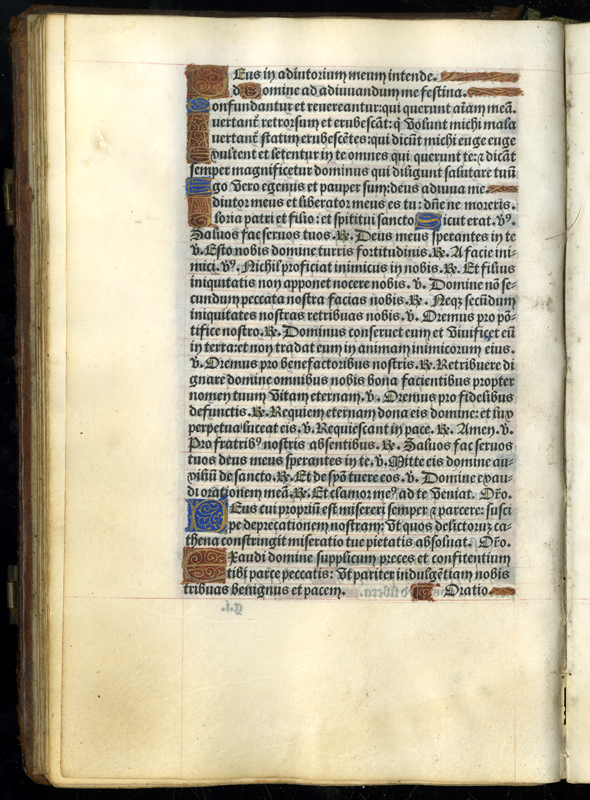 DEus in adiutorium meum intende.
Domine ad adiuuandum me festina.
Confundantur et reuereantur: qui querunt aīam meā.
Auertant̄ retrorsum et erubescāt: q̄ volunt michi mala
Auertant̄ statim erubescētes: qui dicūt michi euge euge
Exultent et letentur in te omnes qui querunt te: ⁊ dicāt
semper magnificetur dominus qui diligunt salutare tuū
Ego vero egenus et pauper sum: deus adiuua me.
Adiutor meus et liberator meus es tu: dn̄e ne moreris.
Gloria patri et filio: et spiritui sancto Sicut erat. v̄ꝰ.
Saluos fac seruos tuos. ℟. Deus meus sperantes in te
v̄. Esto nobis domine turris fortitudinis. ℟. A facie ini-
mici. v̄ꝰ. Nichil proficiat inimicus in nobis. ℟. Et filius
iniquitatis non apponet nocere nobis. v̄. Domine nō se-
cundum peccata nostra facias nobis. ℟. Neqꝫ secūdum
iniquitates nostras retribuas nobis. v̄. Oremus pro pō-
tifice nostro. ℟. Dominus conseruet eum et viuificet eū
in terra: et non tradat eum in animam inimicorum eius.
v̄. Oremus pro benefactoribus nostris. ℟. Retribuere di
gnare domine omnibus nobis bona facientibus propter
nomen tuum vitam eternam. v̄. Oremus pro fidelibus
defunctis. ℟. Requiem eternam dona eis domine: et lux
perpetua luceat eis. v̄. Requiescant in pace. ℟. Amen. v̄.
Pro fratribꝰ nostris absentibus. ℟. Saluos fac seruos
tuos deus meus sperantes in te. v̄. Mitte eis domine au-
xiliū de sancto. ℟. Et de syō tuere eos. v̄. Domine exau-
di orationem meā. ℟. Et clamor meꝰ ad te veniat. Or̄o.
DEus cui propriū est misereri semper ⁊ parcere: susci
pe deprecationem nostram: vt quos delictoruꝫ ca-
thena constringit miseratio tue pietatis absoluat. Or̄o.
EXaudi domine supplicum preces et confitentium
tibi parce peccatis: vt pariter indulgētiam nobis
tribuas benignus et pacem. Oratio.